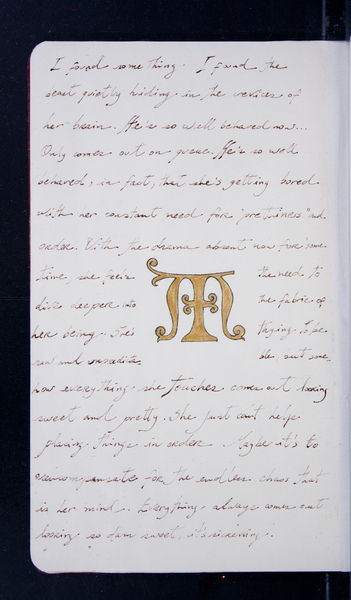 I found something. I found the
beast quietly hiding in the crevices of
her brain. He's so well behaved now...
Only comes out on queue. He's so well
behaved, in fact, that she's getting bored
with her constant need for "prettiness" and
order. With the drama absent now for some
time, she feels the need to
dive deeper into the fabric of
her being. She's trying to be
raw and but some
how everything she touches comes out looking
sweet and pretty. She just can't help
placing things in order. Maybe it's to
overcompensate for the endless chaos that
is her mind. Everything always comes out
looking so dam sweet, it's sickening.